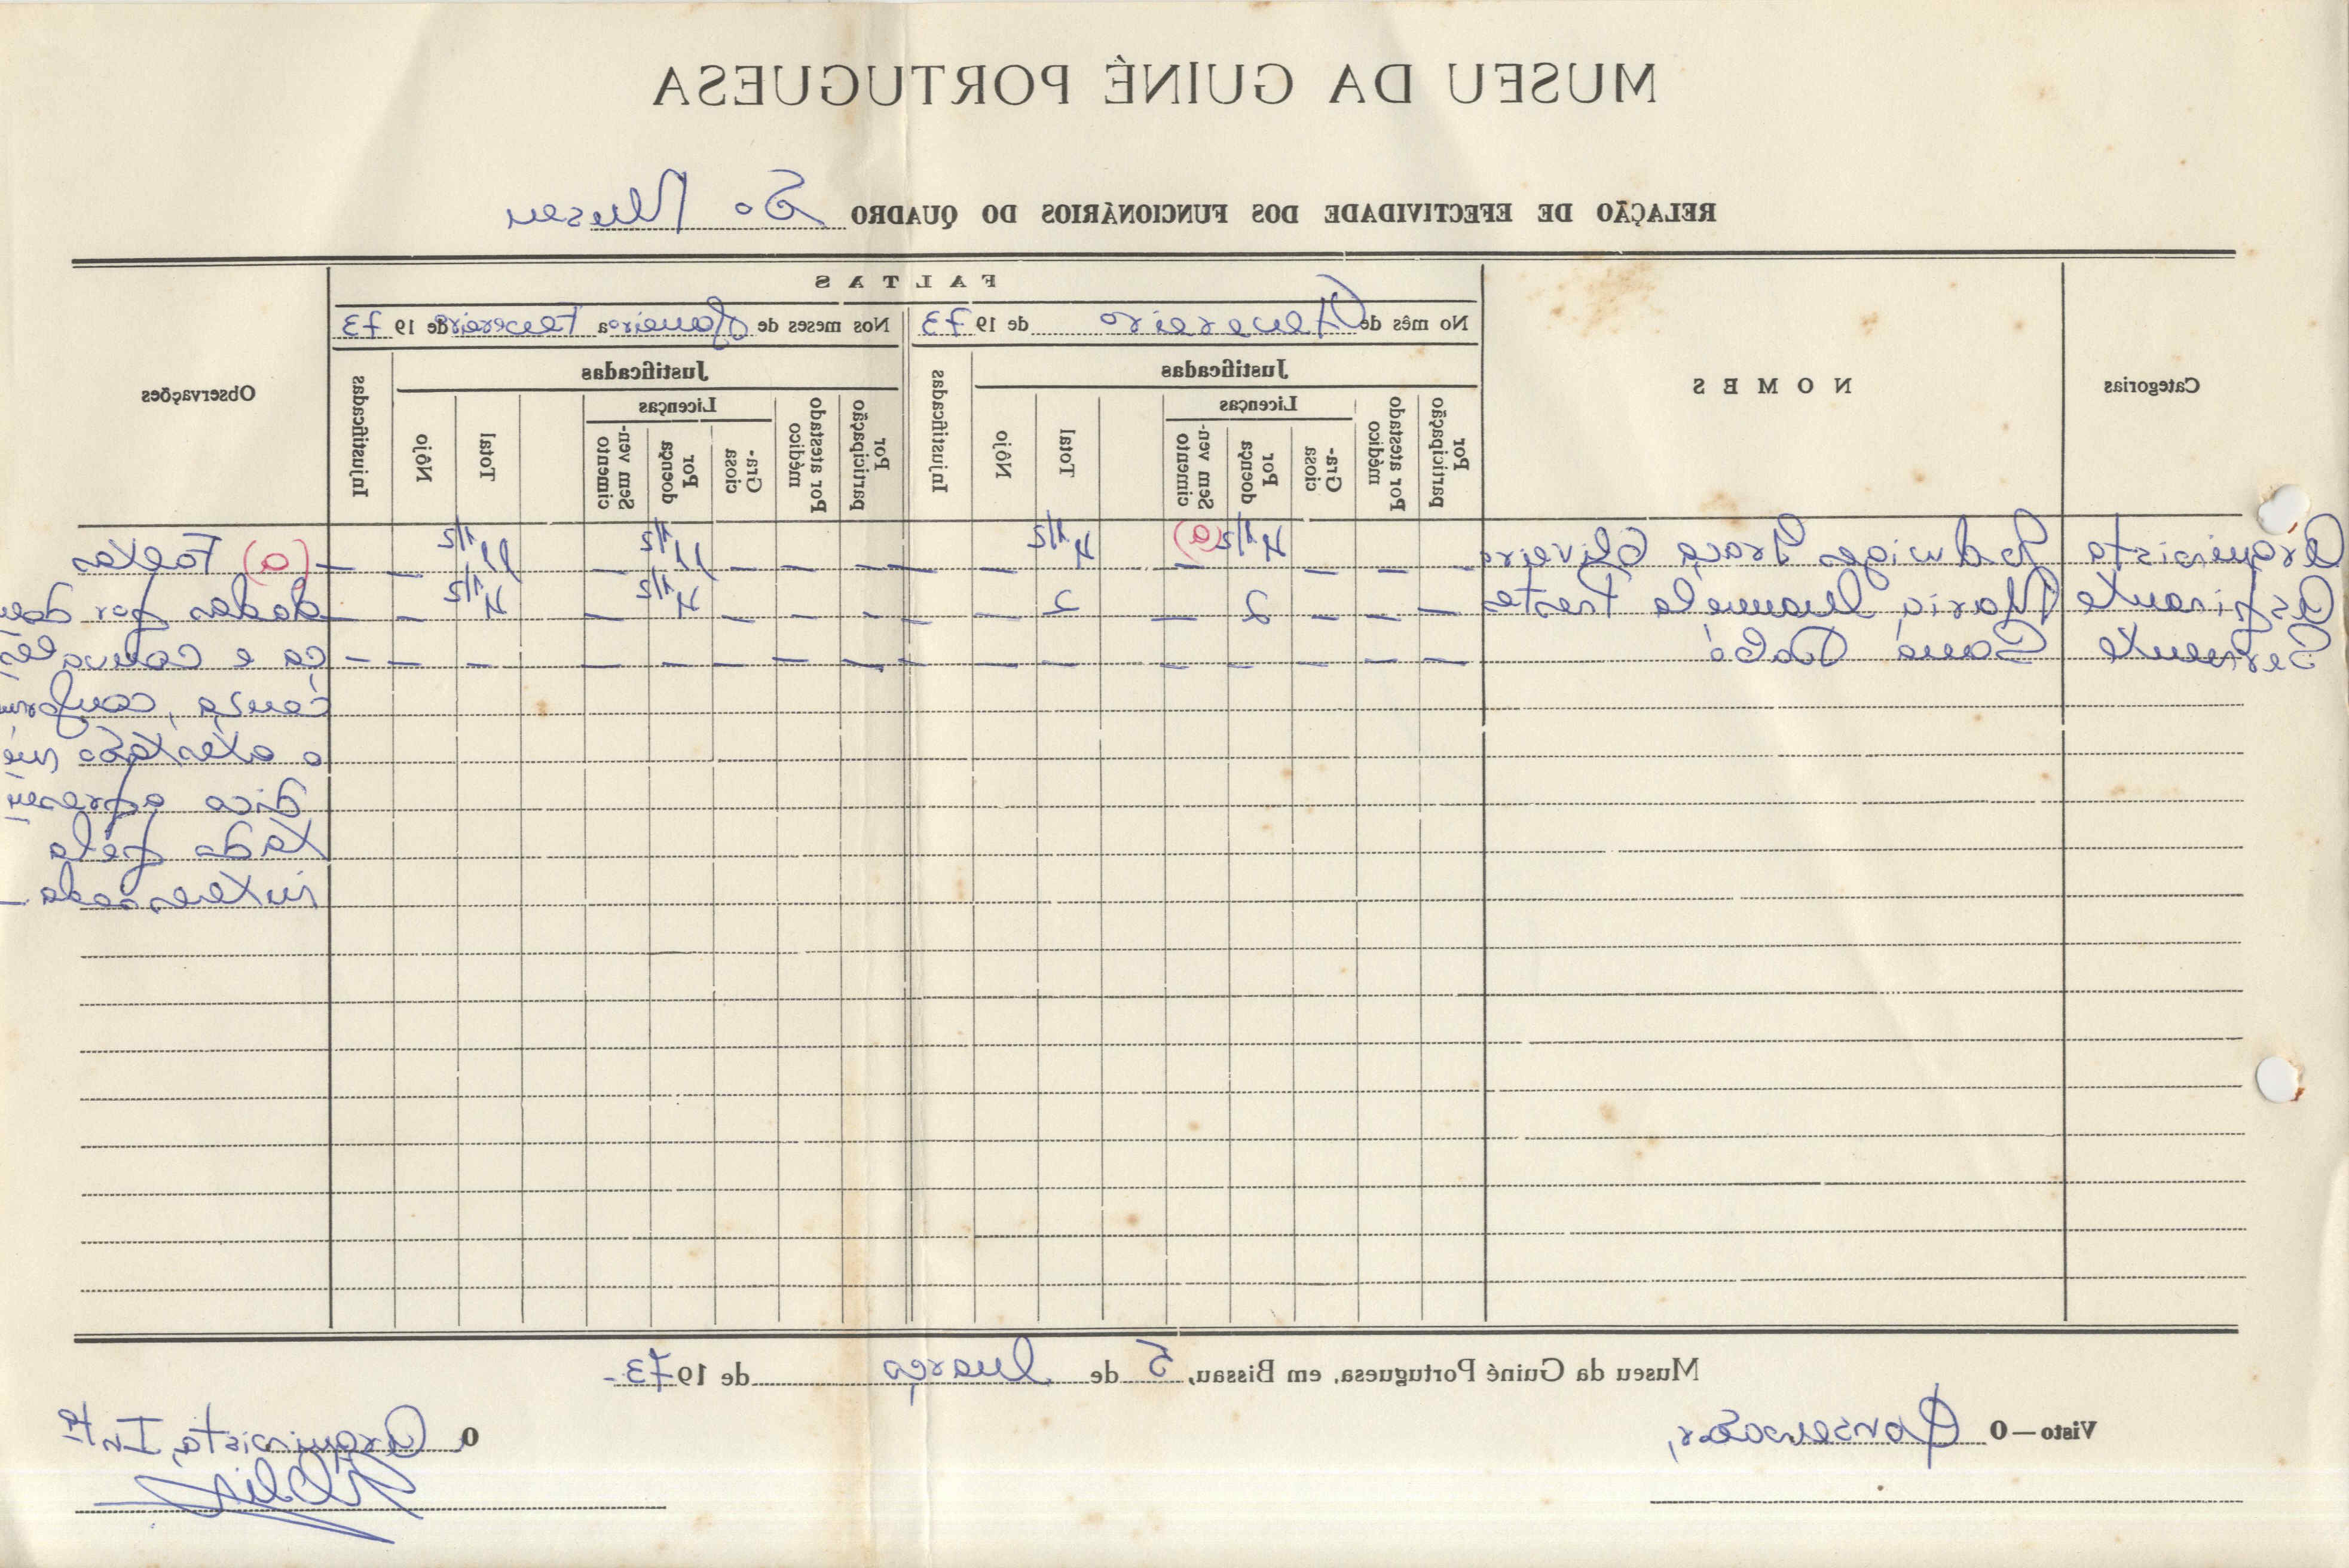 MUSEU DA GUINÉ PORTUGUESA
RELAÇÃO DE EFECTIVIDADE DOS FUNCIONÁRIOS DO QUADRO Do Museu
Categorias
NOMES
FALTAS
No mês de Fevereiro de 1973
Nos meses de Janeiro a Fevereiro de 1973
Justificadas
Justificadas
Licenças
Licenças
Por participação
Por atestado médico
Gra-ciosa
Por doença
Sem ven-cimento
Total
Nôjo
Injustificadas
Por participação
Por atestado médico
Gra-ciosa
Por doença
Sem ven-cimento
Total
Nôjo
Injustificadas
Observações
Arquivista Eduviges Graça Oliveira — — — 4 1/2 (a) — 4 1/2 — — — — 11 1/2 — 11 1/2 — — (a) Faltas
Aspirante Maria Manuela Freste — — — 2 — 2 — — — — — 4 1/2 — 4 1/2 — — dadas por doen
Servente Samá Dabó — — — — — — — — — — — — — — — — ça e convales
cença, conform
o atestado mé
dico apresen
tado pela
interessada -
Museu da Guiné Portuguesa, em Bissau, 5 de Março de 1973-
Visto — O Conservador,
O a Arquivista, Intª